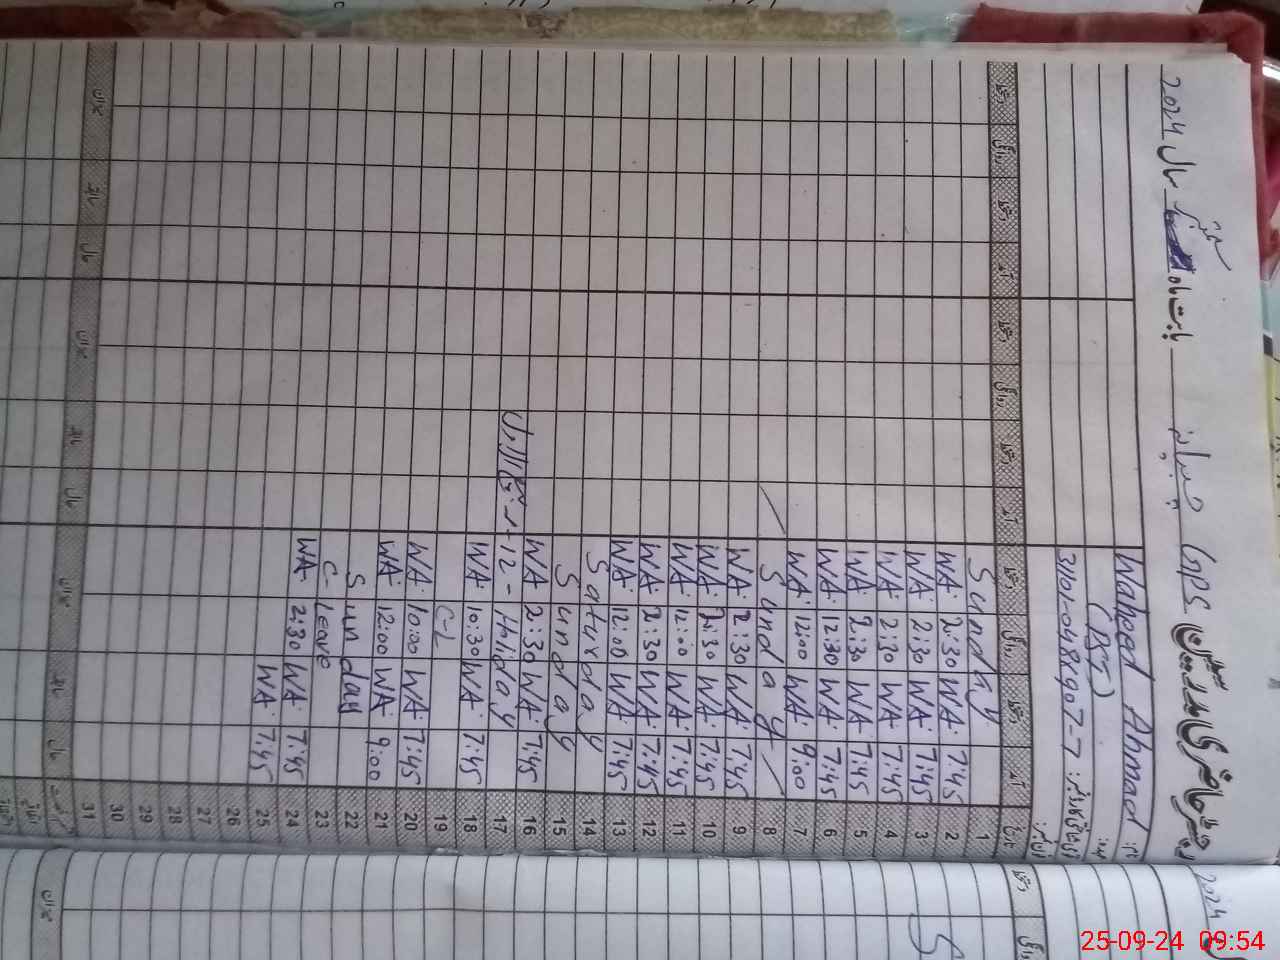 رجسٹر حاضری مدرسین GPS بابت ماہ ستمبر سال 2024
نام: Waheed Ahmad
عہدہ: (PST)
شناختی کارڈ نمبر: 31101-0488907-7
تاریخ آمد دستخط روانگی دستخط آمد دستخط روانگی دستخط آمد دستخط روانگی دستخط
1 Sunday
2 7:45 WA 2:30 WA
3 7:45 WA 2:30 WA
4 7:45 WA 2:30 WA
5 7:45 WA 2:30 WA
6 7:45 WA 12:30 WA
7 9:00 WA 12:00 WA
8 Sunday
9 7:45 WA 2:30 WA
10 7:45 WA 2:30 WA
11 7:45 WA 12:00 WA
12 7:45 WA 2:30 WA
13 7:45 WA 12:00 WA
14 Saturday
15 Sunday
16 7:45 WA 2:30 WA
17 Holiday - 12 ربیع الاول
18 7:45 WA 10:30 WA
19 C-L
20 7:45 WA 10:00 WA
21 9:00 WA 12:00 WA
22 Sunday
23 C-Leave
24 7:45 WA 2:30 WA
25 7:45 WA
26
27
28
29
30
31
حال سابقہ میزان حال سابقہ میزان
2024
دستخط
روانگی
میزان
25-09-24 09:54